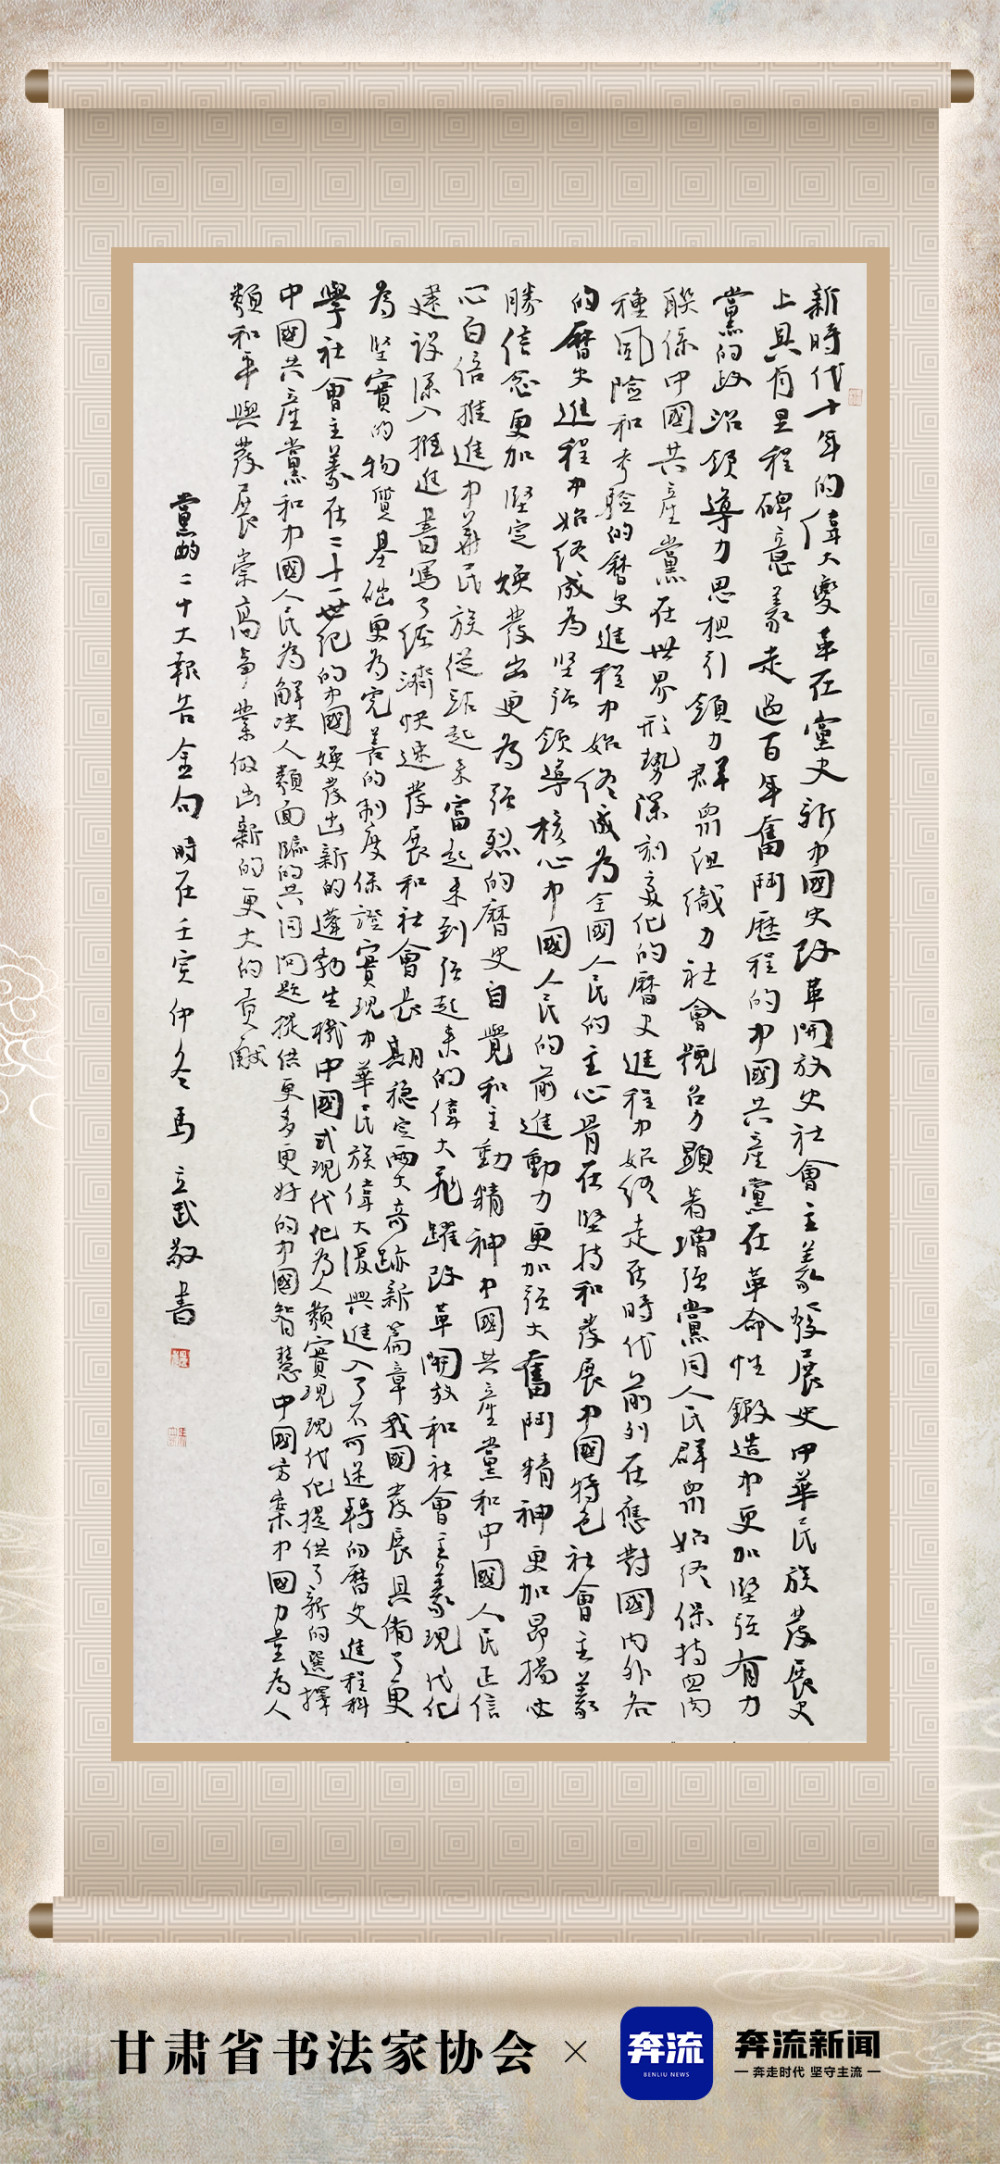 新時代十年的偉大變革在黨史新中國史改革開放史社會主義發展史中華民族發展史
上具有里程碑意義走過百年奮鬥歷程的中國共產黨在革命性鍛造中更加堅強有力
黨的政治領導力思想引領力群眾組織力社會號召力顯著增強黨同人民群眾始終保持血肉
聯係中國共產黨在世界形勢深刻变化的曆史進程中始終走在時代前列在應對國內外各
種風險和考驗的曆史進程中始終成為全國人民的主心骨在堅持和發展中國特色社會主義
的曆史進程中始終成為坚强領導核心中國人民的前進動力更加强大奮鬥精神更加昂揚必
勝信念更加堅定煥發出更為强烈的曆史自覺和主動精神中國共產黨和中國人民正信
心百倍推進中華民族從站起来富起来到强起来的偉大飛躍改革開放和社會主義現代化
建設深入推進書寫了經濟快速發展和社會長期穩定兩大奇跡新篇章我國發展具備了更
為坚實的物質基礎更為完善的制度保證實現中華民族偉大復興進入了不可逆轉的曆史進程科
學社會主義在二十一世纪的中國煥發出新的蓬勃生機中國式現代化為人類實現現代化提供了新的選擇
中國共產黨和中國人民為解决人類面臨的共同問題提供更多更好的中國智慧中國方案中國力量為人
類和平與發展崇高事業做出新的更大的貢獻
黨的二十大報告金句時在壬寅仲冬馬立武敬書
甘肃省书法家协会 × 奔流 奔流新闻
BENLIU NEWS
奔走时代 坚守主流